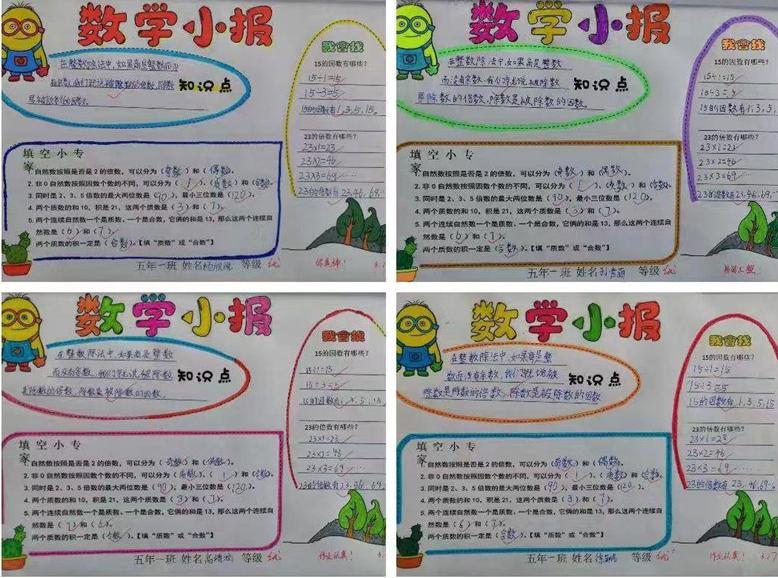 数学小报
我会找
在整数除法中,如果商是整数
知识点
15的因数有哪些?
15÷1=15
15÷3=5
15的因数有1,3,5,15。
23的倍数有哪些?
23×1=23
23×2=46
23×3=69
23的倍数有23,46,69
填空小专家
1.自然数按照是否是2的倍数,可以分为(奇数)和(偶数)。
2.非0自然数按照因数个数的不同,可以分为(1)、(质数)和(合数)。
3.同时是2、3、5倍数的最大两位数是(90),最小三位数是(120)。
4.两个质数的和10,积是21,这两个质数是(3)和(7)。
5.两个连续自然数一个是质数,一个是合数,它俩的和是13,那么这两个连续自
然数是(6)和(7)。
两个质数的积一定是(合数)。【填“质数”或“合数”】
五年一班 姓名 等级 优
数学小报
我会找
在整数除法中,如果商是整数
而没有余数,我们就说被除数
是除数的倍数,除数是被除数的因数。
知识点
15的因数有哪些?
15÷1=15
15÷3=5
15的因数有1,3,5,15
23的倍数有哪些?
23×1=23
23×2=46
23×3=69
23的倍数有23,46,69
填空小专家
1.自然数按照是否是2的倍数,可以分为(奇数)和(偶数)。
2.非0自然数按照因数个数的不同,可以分为(1)、(质数)和(合数)。
3.同时是2、3、5倍数的最大两位数是(90),最小三位数是(120)。
4.两个质数的和10,积是21,这两个质数是(3)和(7)。
5.两个连续自然数一个是质数,一个是合数,它俩的和是13,那么这两个连续自
然数是(6)和(7)。
两个质数的积一定是(合数)。【填“质数”或“合数”】
五年一班 姓名 等级 优
数学小报
我会找
在整数除法中,如果商是整数
而没有余数,我们就说被除数
是除数的倍数,除数是被除数的因数。
知识点
15的因数有哪些?
15÷1=15
15÷3=5
15的因数有1,3,5,15
23的倍数有哪些?
23×1=23
23×2=46
23×3=69
23的倍数有23,46,69
填空小专家
1.自然数按照是否是2的倍数,可以分为(奇数)和(偶数)。
2.非0自然数按照因数个数的不同,可以分为(质数)、(1)和(合数)。
3.同时是2、3、5倍数的最大两位数是(90),最小三位数是(120)。
4.两个质数的和10,积是21,这两个质数是(3)和(7)。
5.两个连续自然数一个是质数,一个是合数,它俩的和是13,那么这两个连续自
然数是
两个质数的积一定是(合数)。【填“质数”或“合数”】
五年一班 姓名 等级 优
作业认真!
数学小报
我会找
在整数除法中,如果商是整
数而没有余数,我们就说被
除数是除数的倍数,除数是被除数的因数
知识点
15的因数有哪些?
15÷1=15
15÷3=5
15的因数有1,3,5,15
23的倍数有哪些?
23×1=23
23×2=46
23×3=69
23的倍数有23,46,69
填空小专家
1.自然数按照是否是2的倍数,可以分为(奇数)和(偶数)。
2.非0自然数按照因数个数的不同,可以分为(质数)、(1)和(合数)。
3.同时是2、3、5倍数的最大两位数是(90),最小三位数是(120)。
4.两个质数的和10,积是21,这两个质数是(3)和(7)。
5.两个连续自然数一个是质数,一个是合数,它俩的和是13,那么这两个连续自
然数是(6)和(7)。
两个质数的积一定是(合数)。【填“质数”或“合数”】
五年一班 姓名 等级 优
作业认真!